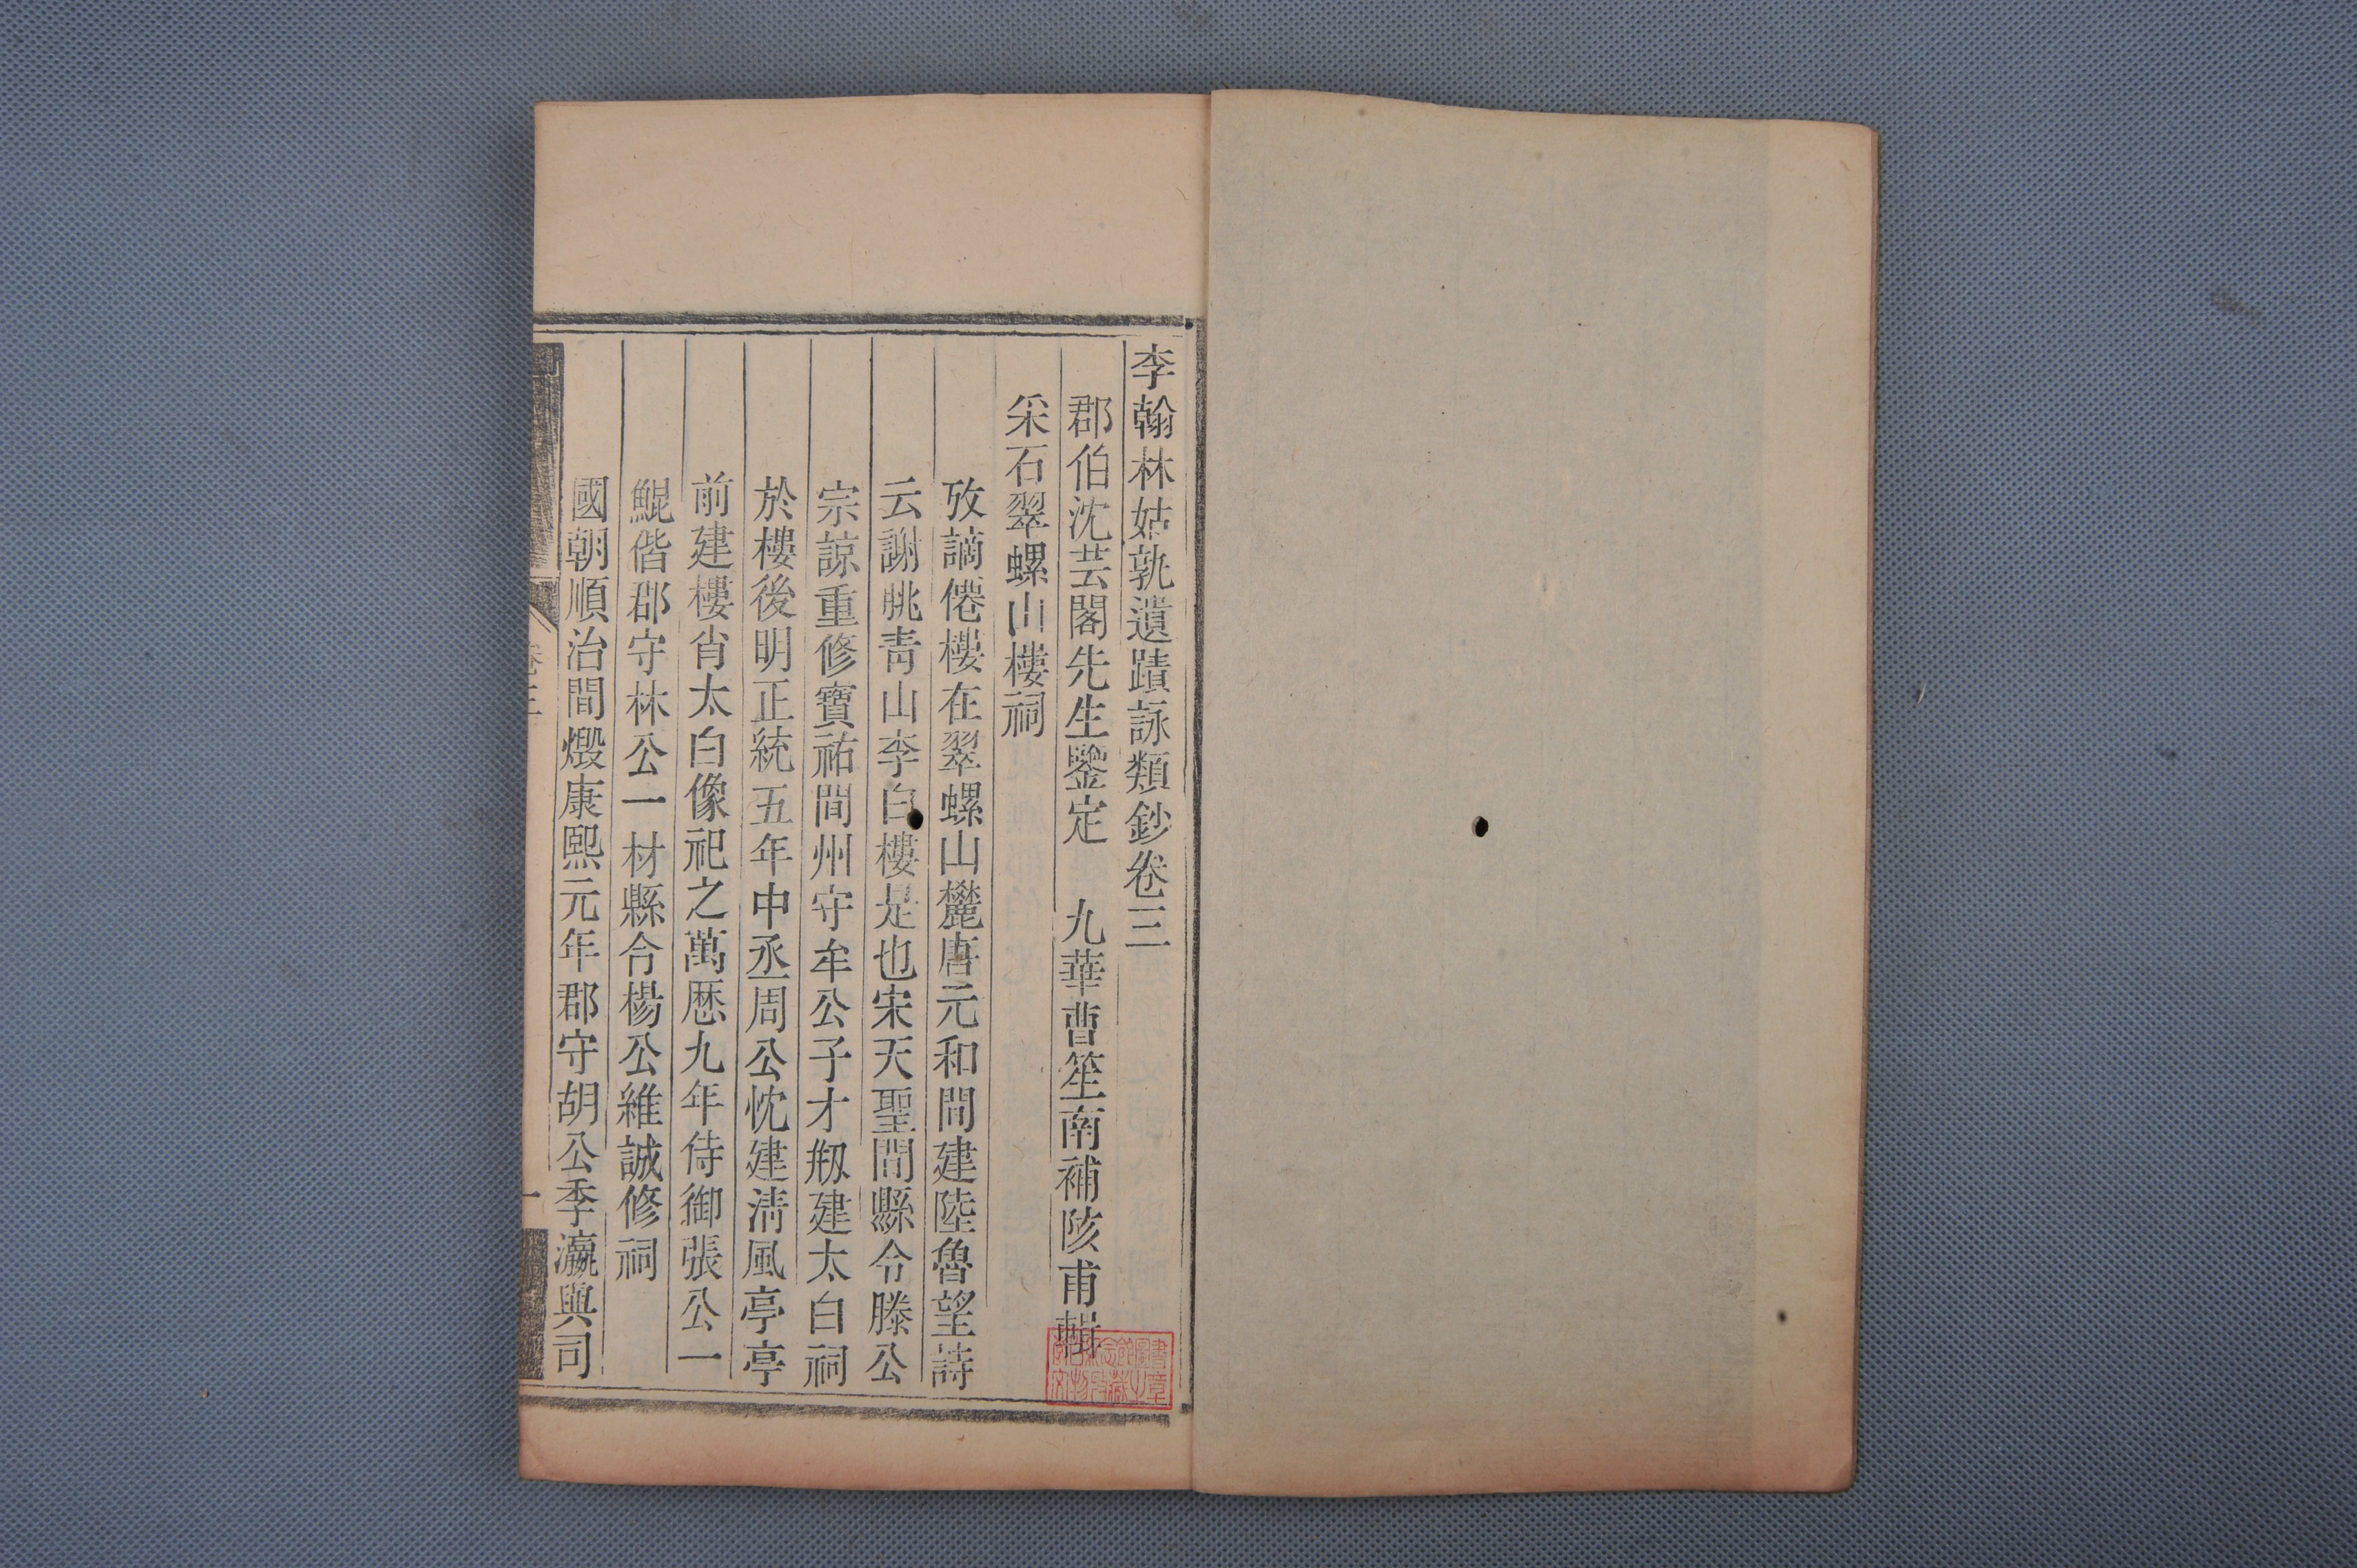 李翰林姑孰遺蹟詠類鈔卷三
郡伯沈芸閣先生鑒定 九華曹笙南補陔甫輯
采石翠螺山樓祠
攷謫僊樓在翠螺山麓唐元和間建陸魯望詩
云謝朓青山李白樓是也宋天聖間縣令滕公
宗諒重修寶祐間州守牟公子才剏建太白祠
於樓後明正統五年中丞周公忱建清風亭亭
前建樓肖太白像祀之萬厯九年侍御張公一
鯤偕郡守林公一材縣令楊公維誠修祠
國朝順治間燬康熙元年郡守胡公季瀛與司
卷三
一